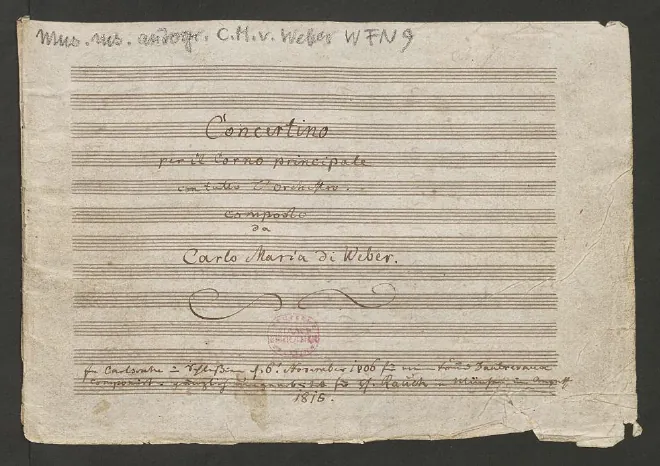 Mus. ms. autogr. C. M. v. Weber WFN 9
Concertino
per il Corno principale
con tutto l'Orchestra.
composto
da
Carlo Maria di Weber.
Carlsruhe in Schlesien d. 6t November 1806 für
componirt. gänzlich umgearbeitet für H: Rauch in München im August
1815.